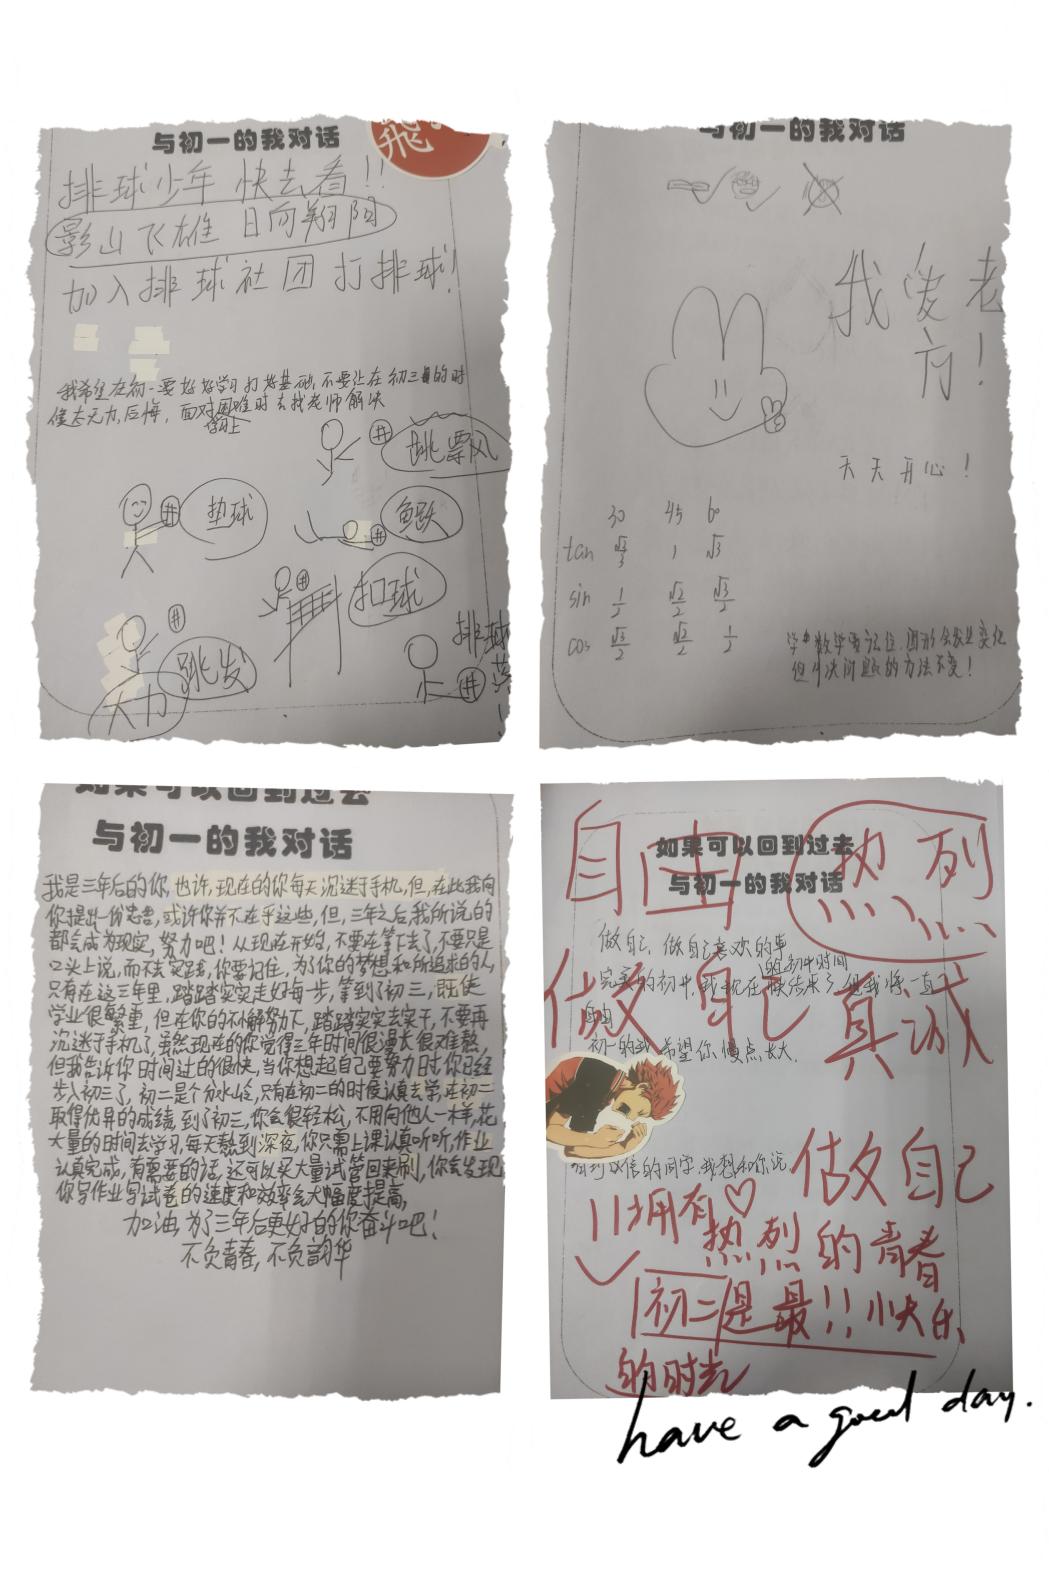 飛
与初一的我对话
排球少年 快去看!!
影山飞雄 日向翔阳
加入排球社团打排球!
我希望在初一要好好学习打好基础,不要让在初三的时
候太无力,后悔,面对困难时去找老师解决
学习上
跳飘
垫球
鱼跃
扣球
跳发
大力
排球
与初一的我对话
我爱老
方!
天天开心!
30 45 60
tan √3/3 1 √3
sin 1/2 √2/2 √3/2
cos √3/2 √2/2 1/2
学数学要记住,图形会发生变化
但解决问题的方法不变!
如果可以回到过去
与初一的我对话
我是三年后的你,也许,现在的你每天沉迷于手机,但,在此我向
你提出一份忠告,或许你并不在乎这些,但,三年之后,我所说的
都会成为现实,努力吧!从现在开始,不要在等下去了,不要只是
口头上说,而不去实践,你要记住,为了你的梦想和所追求的人,
只有在这三年里,踏踏实实走好每一步,等到了初三,既使
学业很繁重,但在你的不懈努力下,踏踏实实去实干,不要再
沉迷于手机了,虽然现在的你觉得三年时间很漫长很难熬,
但我告诉你,时间过的很快,当你想起自己要努力时,你已经
步入初三了,初二是个分水岭,只有在初二的时候认真去学,在初二
取得优异的成绩,到了初三,你会很轻松,不用向他人一样,花
大量的时间去学习,每天熬到深夜,你只需上课认真听听,作业
认真完成,有需要的话,还可以买大量试管回来刷,你会发现
你写作业写试卷的速度和效率会大幅度提高,
加油,为了三年后更好的你奋斗吧!
不负青春,不负韶华
自由 热烈
如果可以回到过去
与初一的我对话
做自己,做自己喜欢的事
的初中时间
完美的初中,我现在快结束了,但我将一直
自由
做自己 真诚
初一的我,希望你慢点长大,
收到这信的同学,我想和你说
做自己
拥有♡
热烈的青春
初二是最!!快乐
的时光
have a good day.